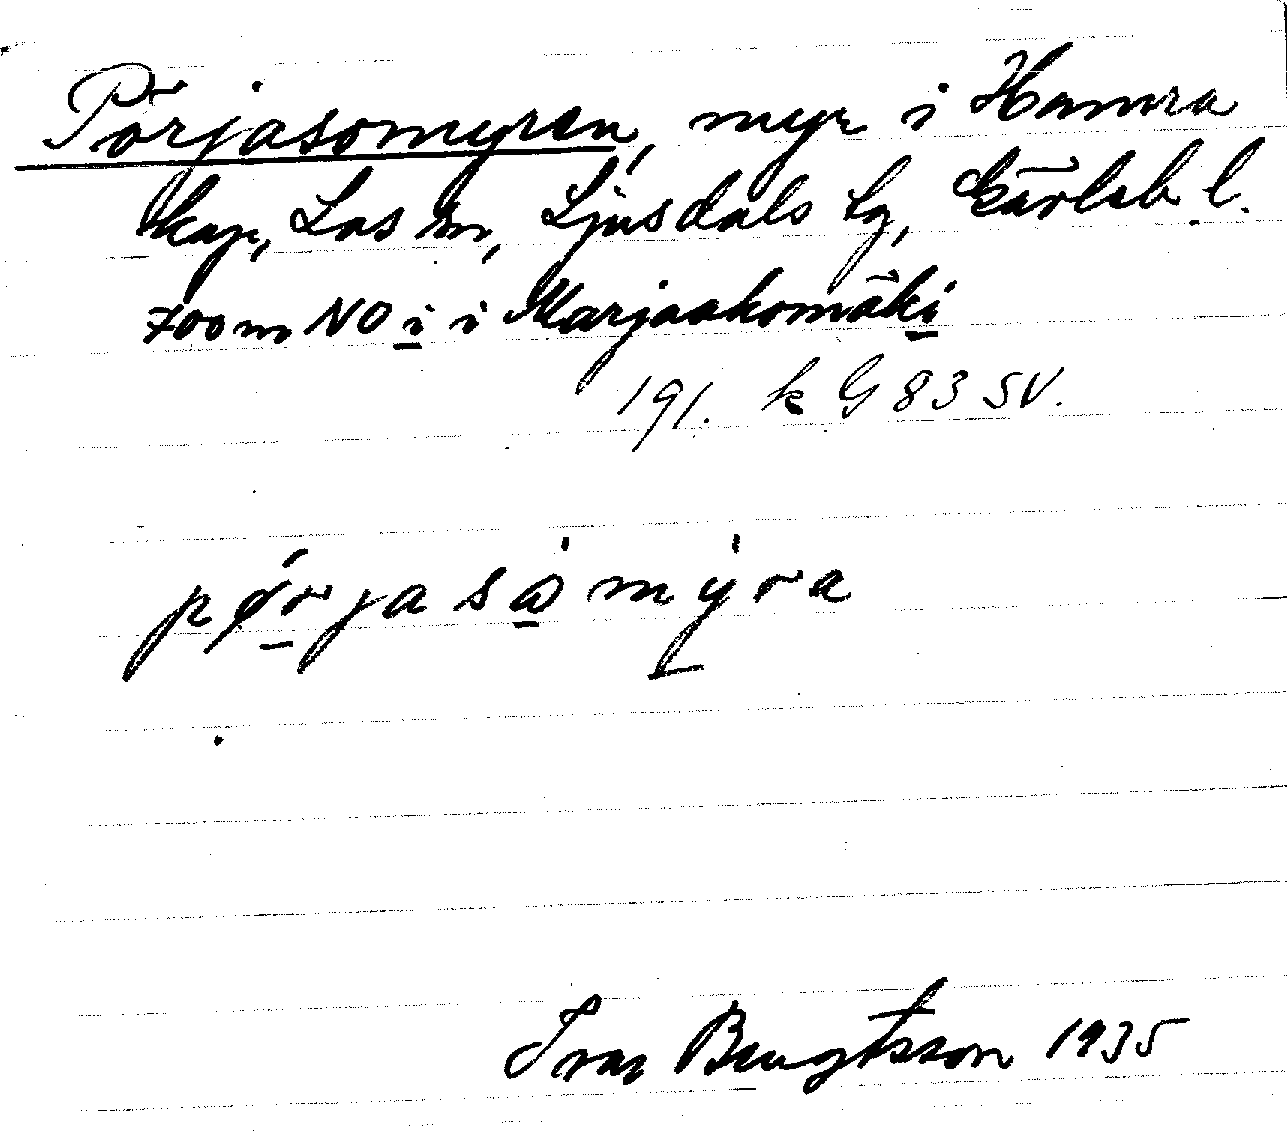 Pörjasomyren, myr i Hamra
kap, Los sn, Ljusdals tg, Gävleb l.
700 m NO i i Marjaahomäki
191. k G 83 SV.
pǿrjasåmýra
Ivar Bengtsson 1935